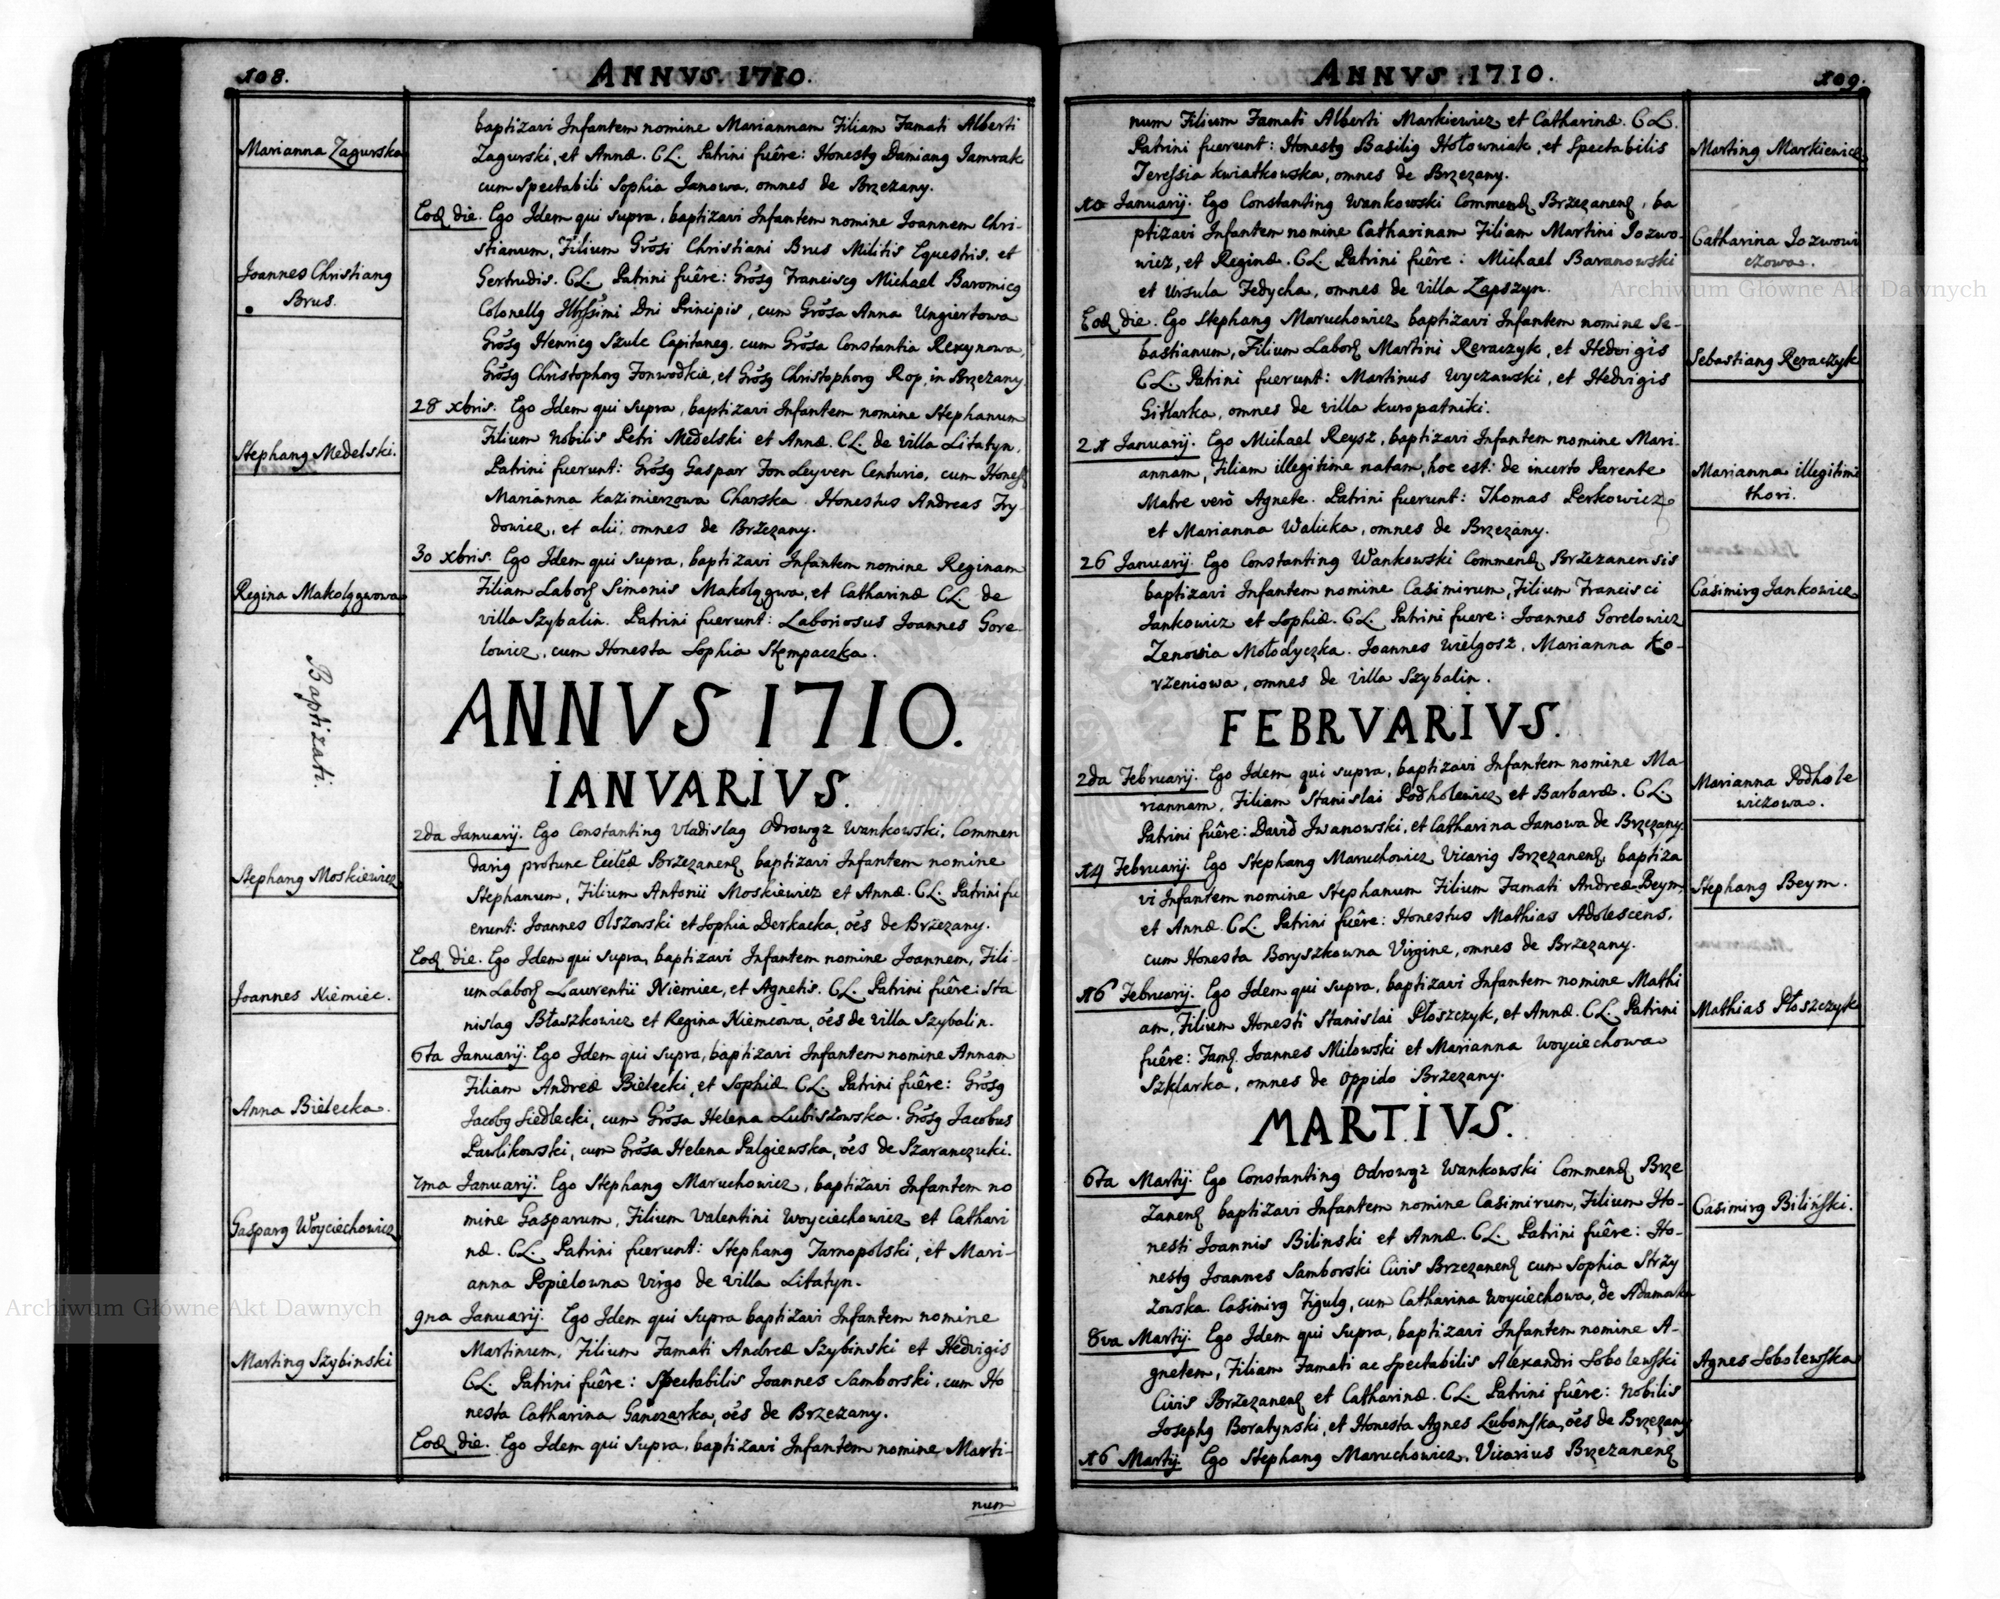 108.
ANNVS 1710.
Marianna Zagurska
Joannes Christiang
Brus.
Stephang Medelski.
Regina Makolągwowa
Baptizati.
Stephang Moskiewicz
Joannes Niemiec.
Anna Bielecka.
Gasparg Woyciechowicz
Marting Szybinski
baptizavi Infantem nomine Mariannam Filiam Famati Alberti
Zagurski, et Annæ. CL. Patrini fuêre: Honestg Damiang Jamrak
cum Spectabili Sophia Janowa, omnes de Brzezany.
Eod die. Ego Idem qui supra, baptizavi Infantem nomine Joannem Chri-
stianum, Filium Grosi Christiani Brus Militis Equestris, et
Gertrudis. CL. Patrini fuêre: Grosg Franciscg Michael Baromicg
Colonellg Illssimi Dni Principis, cum Grosa Anna Ungiertowa
Grosg Henricg Szulc Capitaneg, cum Grosa Constantia Rexynowa,
Grosg Christophorg Fonwodkie, et Grosg Christophorg Rop, in Brzezany.
28 xbris. Ego Idem qui supra, baptizavi Infantem nomine Stephanum
Filium Nobilis Petri Medelski et Annæ. CL. de villa Litatyn.
Patrini fuerunt: Grosg Gaspar Fon Leyven Centurio, cum Honest
Marianna Kazimierzowa Charska. Honestus Andreas Fry-
dowicz, et alii, omnes de Brzezany.
30 xbris. Ego Idem qui supra, baptizavi Infantem nomine Reginam
Filiam Labor Simonis Makolągwa, et Catharinæ CL. de
villa Szybalin. Patrini fuerunt: Laboriosus Joannes Gore-
lowicz, cum Honesta Sophia Stempaczka.
ANNVS 1710.
IANVARIVS.
2da Januarij. Ego Constanting Vladislag Odrowąz Wankowski, Commen
darig protunc Ecclæ Brzezanen baptizavi Infantem nomine
Stephanum, Filium Antonii Moskiewicz et Annæ. CL. Patrini fu
erunt: Joannes Olszowski et Sophia Derkacka, oes de Brzezany.
Eod die. Ego Idem qui supra, baptizavi Infantem nomine Joannem, Fili-
um Labor Laurentii Niemiec, et Agnetis. CL. Patrini fuêre: Sta
nislag Błaszkowicz et Regina Niemcowa, oes de villa Szybalin.
6ta Januarij. Ego Idem qui supra, baptizavi Infantem nomine Annam
Filiam Andreæ Bielecki, et Sophiæ CL. Patrini fuêre: Grosg
Jacobg Siedlecki, cum Grosa Helena Lubiszowska. Grosg Jacobus
Pawlikowski, cum Grosa Helena Palgiewska, oes de Szaranczuki.
7ma Januarij. Ego Stephang Maruchowicz, baptizavi Infantem no
mine Gasparum, Filium Valentini Woyciechowicz et Cathari
næ. CL. Patrini fuerunt: Stephang Tarnopolski, et Mari-
anna Popielowna Virgo de villa Litatyn.
9na Januarij. Ego Idem qui supra baptizavi Infantem nomine
Martinum, Filium Famati Andreæ Szybinski et Hedvigis
CL. Patrini fuêre: Spectabilis Joannes Samborski, cum Ho
nesta Catharina Ganczarka, oes de Brzezany.
Eod die. Ego Idem qui supra, baptizavi Infantem nomine Marti-
num
ANNVS 1710.
109.
num Filium Famati Alberti Markiewicz et Catharinæ. CL.
Patrini fuerunt: Honestg Basilig Hołowniak, et Spectabilis
Teressia Kwiatkowska, omnes de Brzezany.
10 Januarij. Ego Constanting Wankowski Commend Brzezanen, ba
ptizavi Infantem nomine Catharinam Filiam Martini Jozwo-
wicz, et Reginæ. CL. Patrini fuêre: Michael Baranowski
et Ursula Fedycha, omnes de villa Łapszyn.
Eod die. Ego Stephang Maruchowicz baptizavi Infantem nomine Se-
bastianum, Filium Labor Martini Reraczyk, et Hedvigis
CL. Patrini fuerunt: Martinus Wyczawski, et Hedvigis
Gitlarka, omnes de villa Kuropatniki.
21 Januarij. Ego Michael Reysz, baptizavi Infantem nomine Mari-
annam, Filiam illegitime natam, hoc est: de incerto Parente
Matre verò Agnete. Patrini fuerunt: Thomas Perkowicz
et Marianna Walicka, omnes de Brzezany.
26 Januarij. Ego Constanting Wankowski Commend Brzezanensis
baptizavi Infantem nomine Casimirum, Filium Francisci
Jankowicz et Sophiæ. CL. Patrini fuêre: Joannes Gorelowicz
Zenowia Mołodyczka. Joannes Wielgosz, Marianna Ko-
rzeniowa, omnes de villa Szybalin.
FEBRVARIVS.
2da Februarij. Ego Idem qui supra, baptizavi Infantem nomine Ma-
riannam, Filiam Stanislai Podholewicz et Barbaræ. CL.
Patrini fuêre: David Iwanowski, et Catharina Janowa de Brzezany.
14 Februarij. Ego Stephang Maruchowicz Vicarig Brzezanen, baptiza
vi Infantem nomine Stephanum Filium Famati Andreæ Beym,
et Annæ. CL. Patrini fuêre: Honestus Mathias Adolescens,
cum Honesta Boryszkowna Virgine, omnes de Brzezany.
16 Februarij. Ego Idem qui supra, baptizavi Infantem nomine Mathi
am, Filium Honesti Stanislai Płoszczyk, et Annæ. CL. Patrini
fuêre: Fam. Joannes Milowski et Marianna Woyciechowa
Szklarka, omnes de Oppido Brzezany.
MARTIVS.
6ta Martij. Ego Constanting Odrowąz Wankowski Commend Brze
zanen baptizavi Infantem nomine Casimirum, Filium Ho-
nesti Joannis Bilinski et Annæ. CL. Patrini fuêre: Ho-
nestg Joannes Samborski Civis Brzezanen cum Sophia Strzy
zowska. Casimirg Figulg, cum Catharina Woyciechowa, de Adamaka
8va Martij. Ego Idem qui supra, baptizavi Infantem nomine A-
gnetem, Filiam Famati ac Spectabilis Alexandri Sobolewski
Civis Brzezanen et Catharinæ. CL. Patrini fuêre: Nobilis
Josephg Boratynski, et Honesta Agnes Lubomska, oes de Brzezany
16 Martij. Ego Stephang Maruchowicz, Vicarius Brzezanen
Marting Markiewicz
Catharina Jozwowi
czowa.
Sebastiang Reraczyk
Marianna illegitimi
thori.
Casimirg Jankowicz
Marianna Podhole
wiczowa.
Stephang Beym.
Mathias Płoszczyk
Casimirg Biliński.
Agnes Sobolewska
Archiwum Główne Akt Dawnych
Archiwum Główne Akt Dawnych